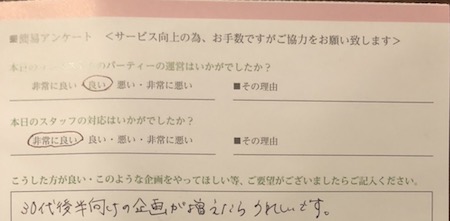 ■簡易アンケート <サービス向上の為、お手数ですがご協力をお願い致します>
本日の パーティーの運営はいかがでしたか?
非常に良い・良い・悪い・非常に悪い ■その理由
本日のスタッフの対応はいかがでしたか?
非常に良い・良い・悪い・非常に悪い ■その理由
こうした方が良い・このような企画をやってほしい等、ご要望がございましたらご記入ください。
30代後半向けの企画が増えたらうれしいです。